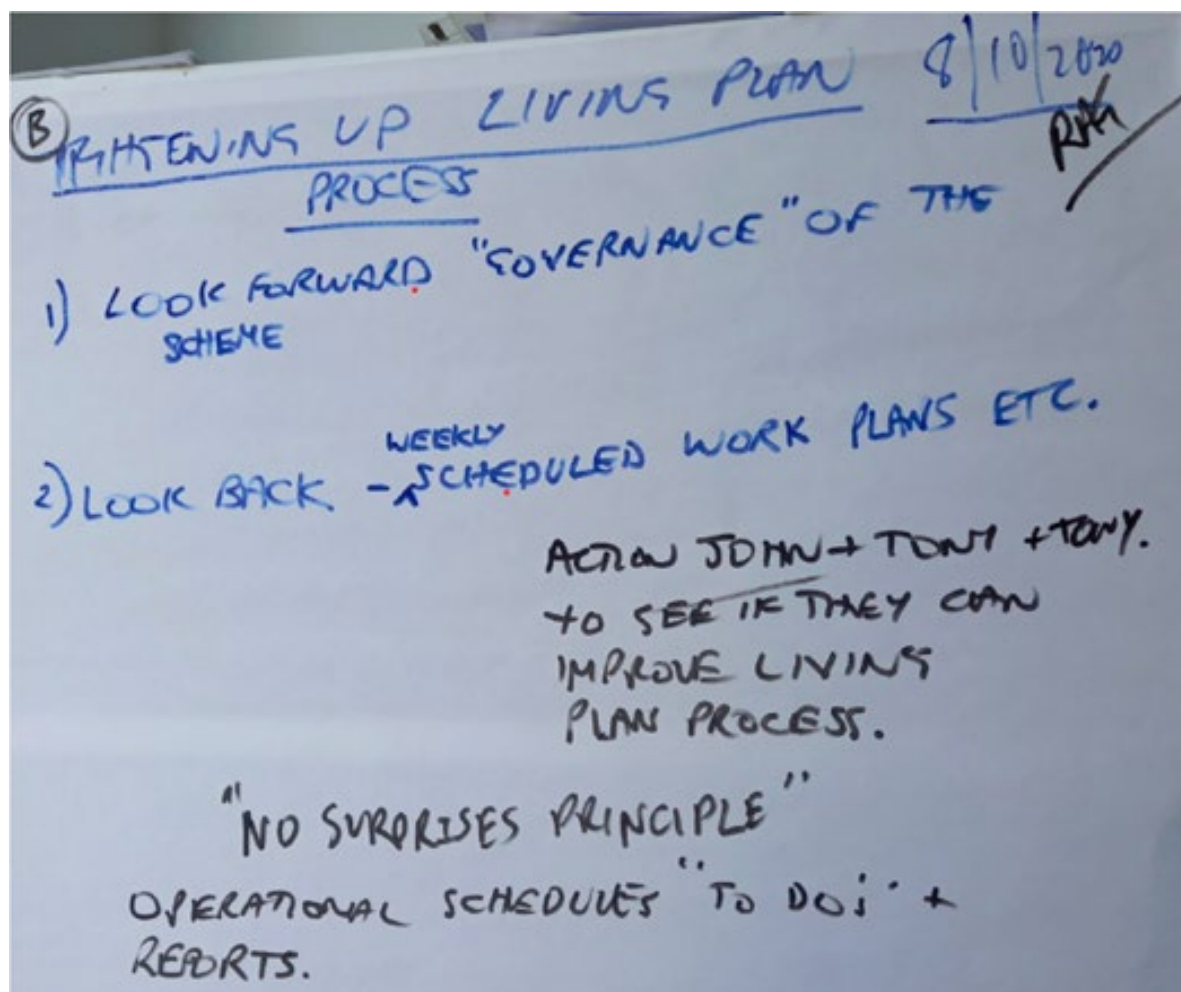 B
TIGHTENING UP LIVING PLAN 8/10/2020
PROCESS
1) LOOK FORWARD "GOVERNANCE" OF THE
SCHEME
WEEKLY
2) LOOK BACK - SCHEDULED WORK PLANS ETC.
ACTION JOHN + TONY + TONY.
TO SEE IF THEY CAN
IMPROVE LIVING
PLAN PROCESS.
"NO SURPRISES PRINCIPLE"
OPERATIONAL SCHEDULES "TO DO;" +
REPORTS.